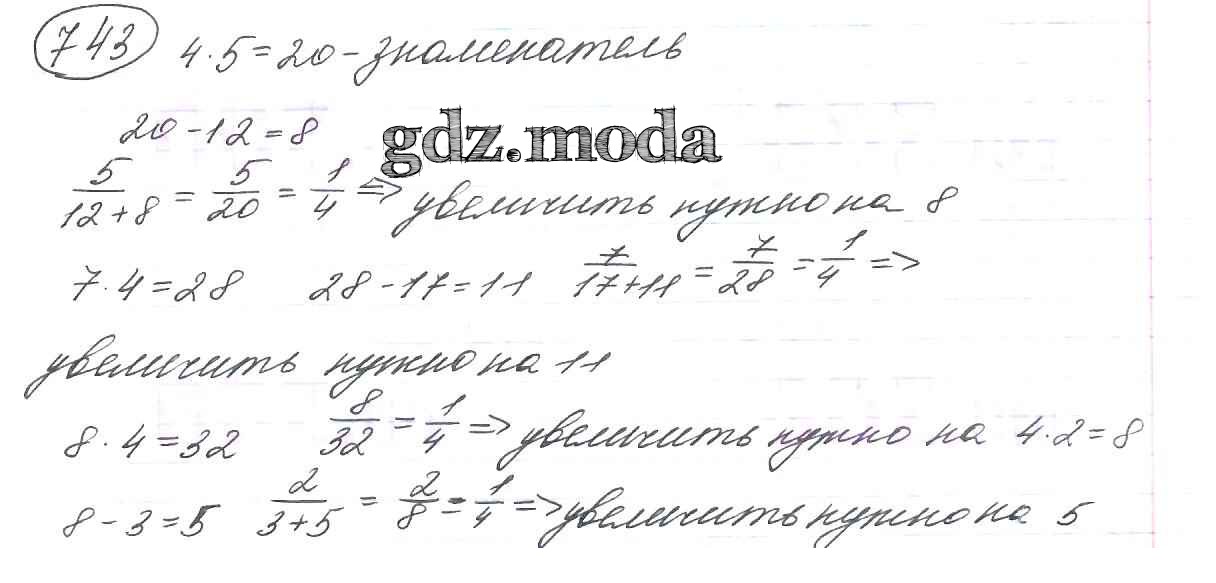 743 4·5=20-знаменатель
20-12=8
gdz.moda
5/(12+8) = 5/20 = 1/4 => увеличить нужно на 8
7·4=28 28-17=11 7/(17+11) = 7/28 = 1/4 =>
увеличить нужно на 11
8·4=32 8/32 = 1/4 => увеличить нужно на 4·2=8
8-3=5 2/(3+5) = 2/8 = 1/4 => увеличить нужно на 5